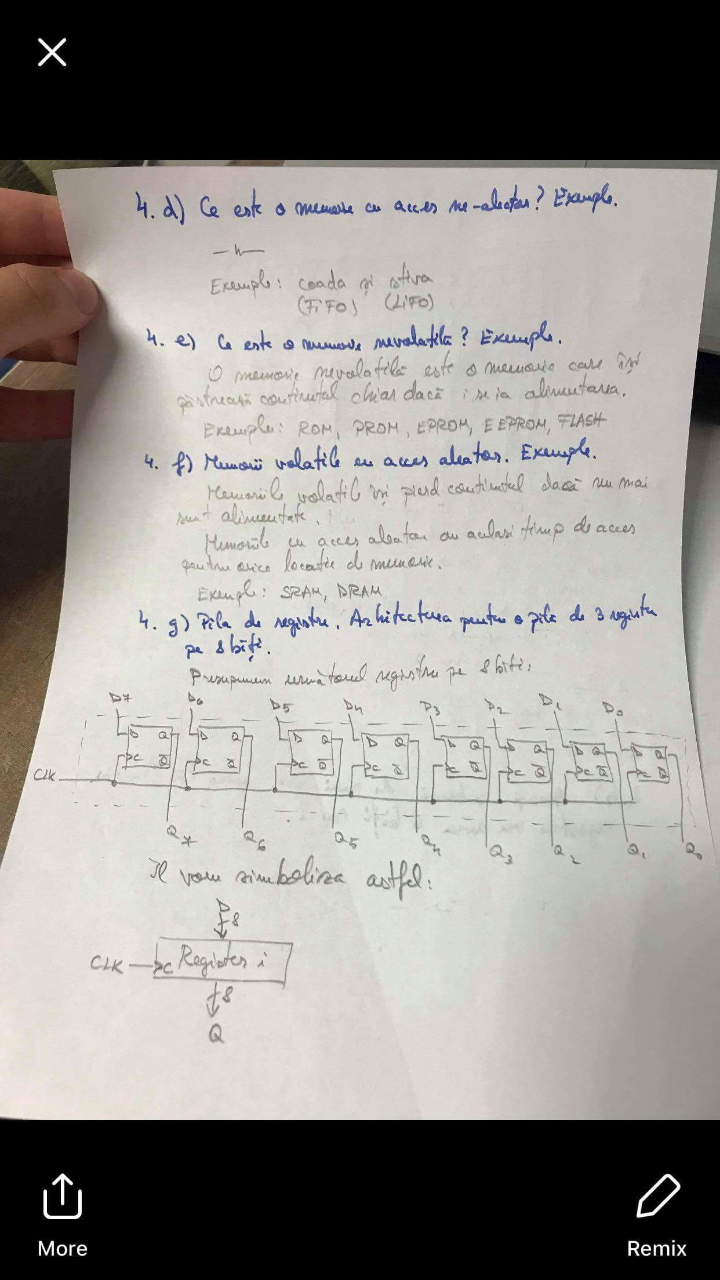 4. d) Ce este o memorie cu acces ne-aleator? Exemple.
—〃—
Exemple: coada și stiva
(FiFO) (LiFO)
4. e) Ce este o memorie nevolatilă? Exemple.
O memorie nevolatilă este o memorie care își
păstrează continutul chiar dacă i se ia alimentarea.
Exemple: ROM, PROM, EPROM, EEPROM, FLASH
4. f) Memorii volatile cu acces aleator. Exemple.
Memoriile volatile își pierd continutul dacă nu mai
sunt alimentate.
Memoriile cu acces aleator au acelasi timp de acces
pentru orice locatie de memorie.
Exemple: SRAM, DRAM
4. g) Pila de registre. Arhitectura pentru o pila de 3 registre
pe 8 biți.
Presupunem următorul registru pe 8 biti:
D7 D6 D5 D4 D3 D2 D1 D0
D Q D Q D Q D Q D Q D Q D Q D Q
C Q̅ C Q̅ C Q̅ C Q̅ C Q̅ C Q̅ C Q̅ C Q̅
CLK
Q7 Q6 Q5 Q4 Q3 Q2 Q1 Q0
Il vom simboliza astfel:
D
8
CLK C Register i
8
Q
More Remix